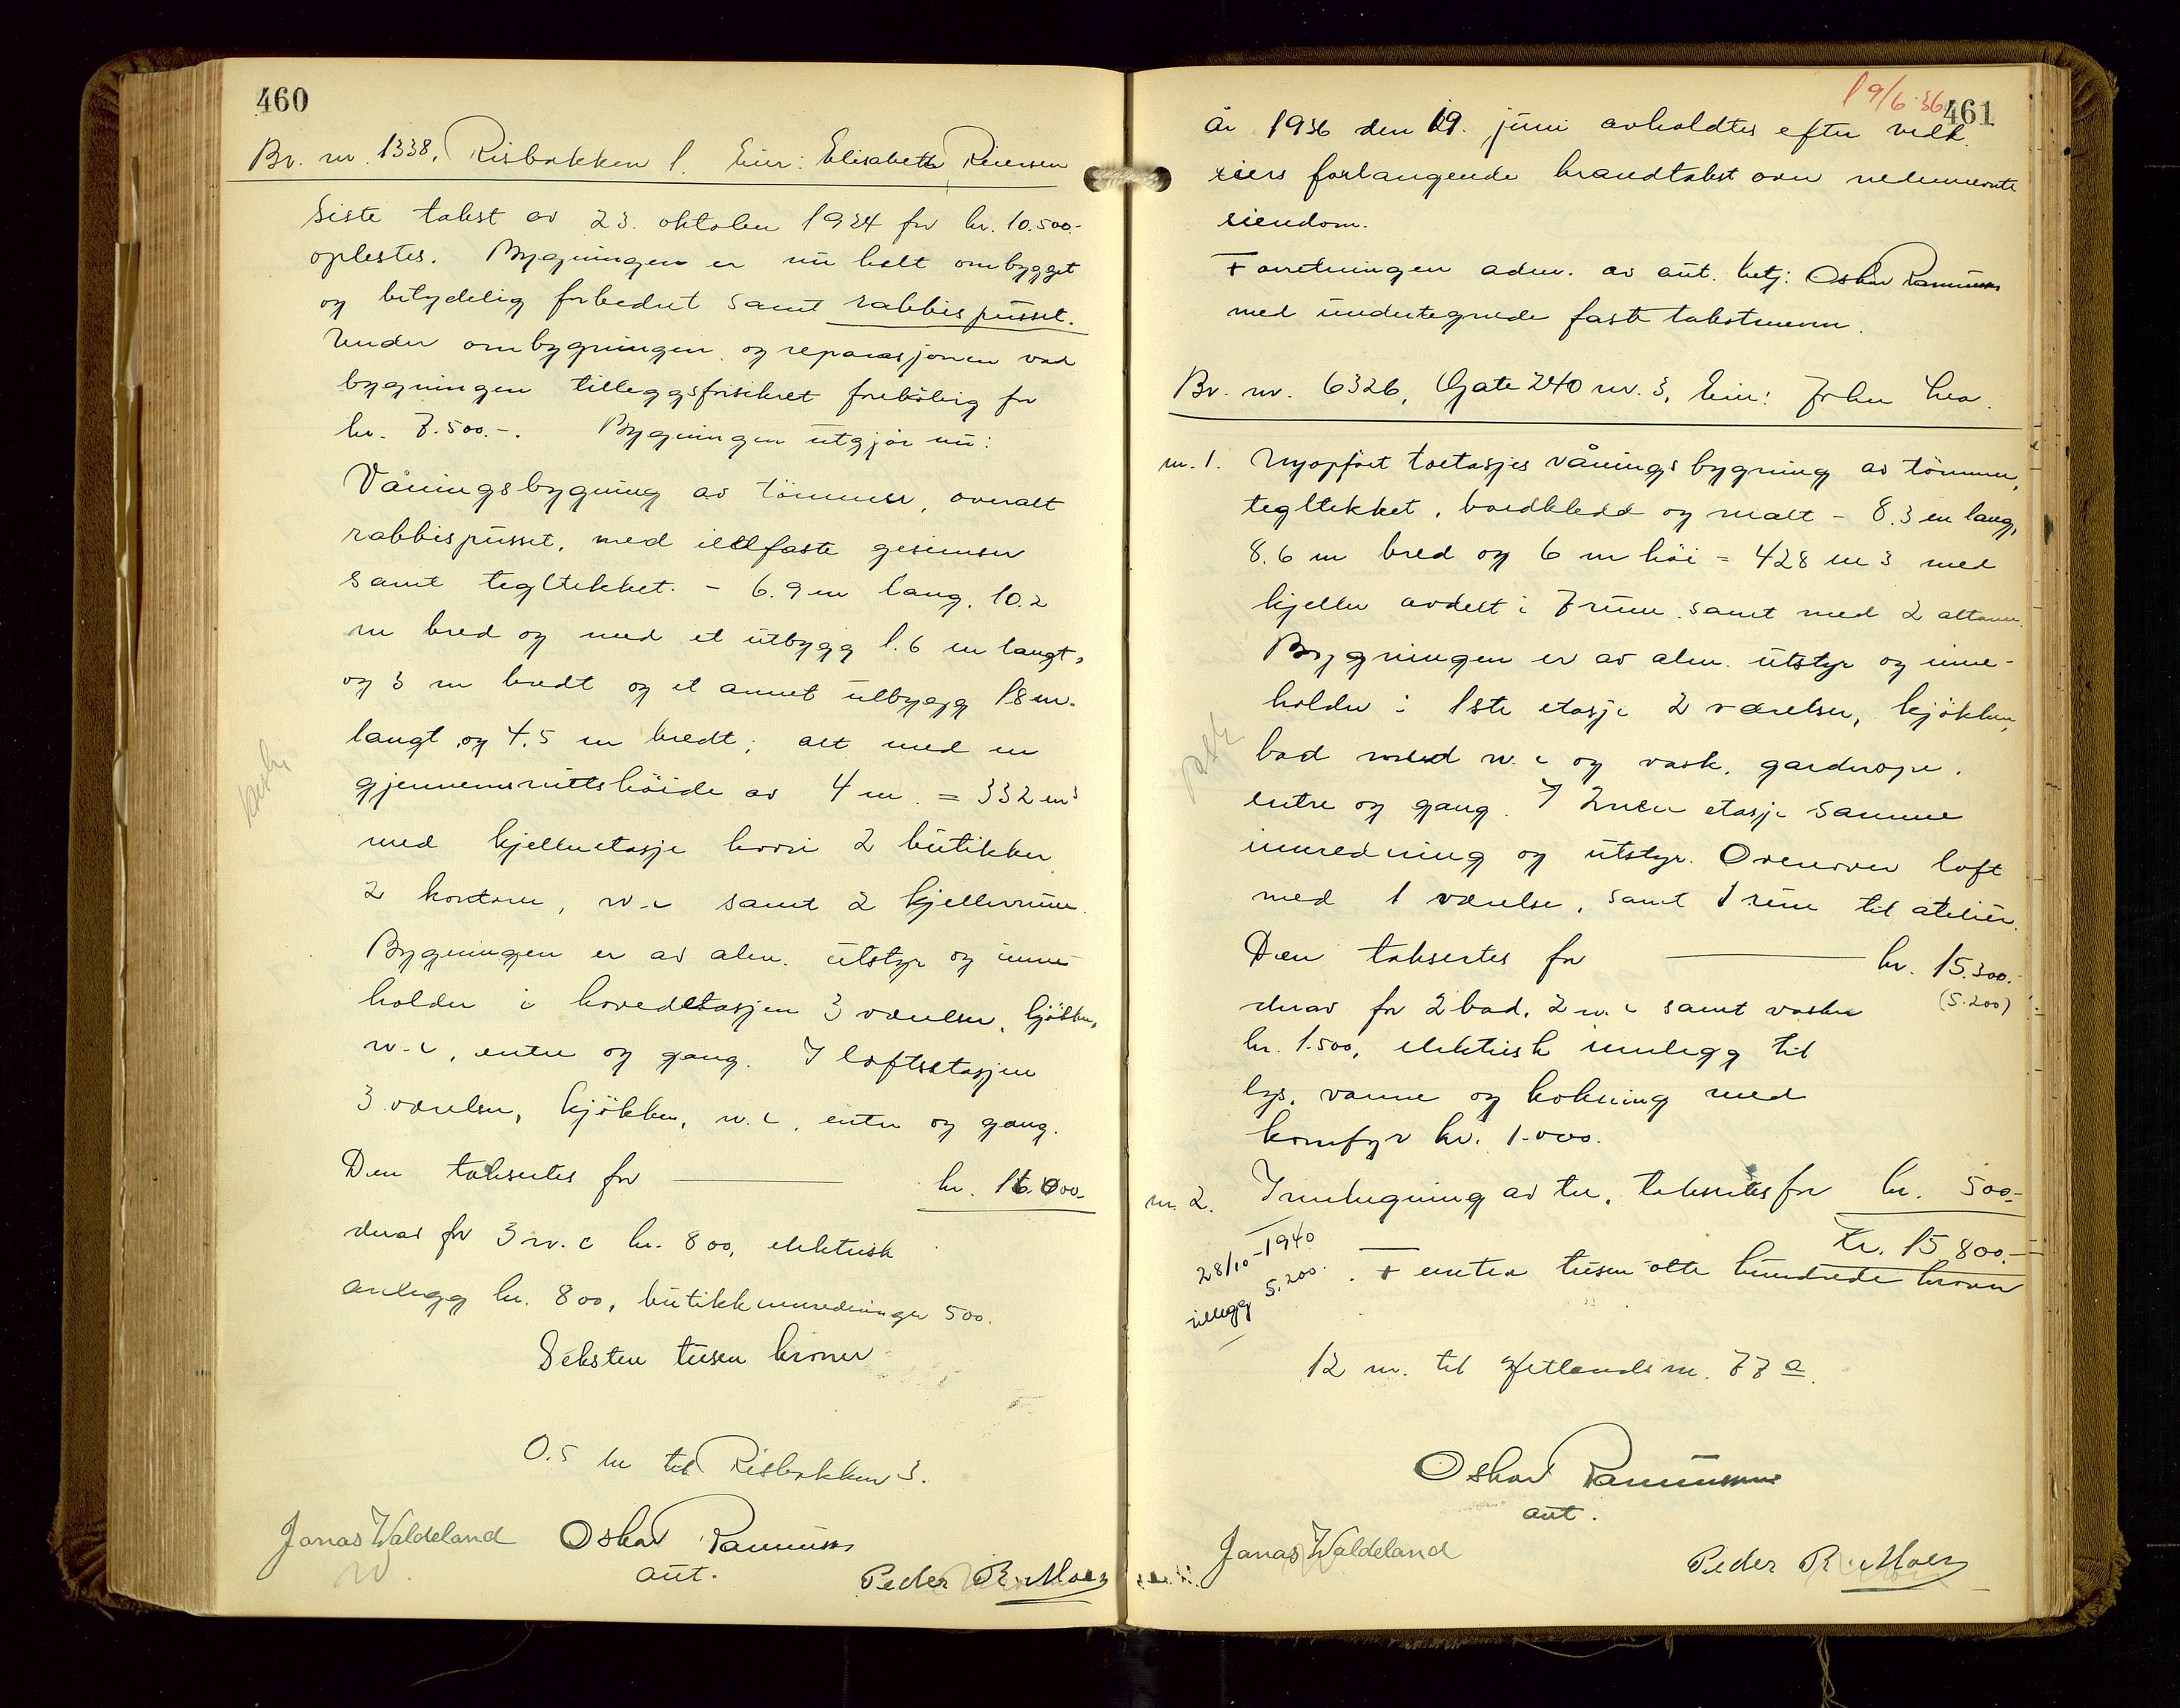 460
Br. nr. 1338, Risbakken 1. Eier: Elisabeth Reiersen
Siste takst av 23. oktober 1924 for kr. 10.500.-
oplestes. Bygningen er nu helt ombygget
og betydelig forbedret samt rabbispusset.
Under ombygningen og reparasjonen var
bygningen tilleggsforsikret foreløbig for
kr. 7.500.-. Bygningen utgjør nu:
Våningsbygning av tømmer, overalt
rabbispusset, med ildfaste gesimser
samt tegltekket. - 6.9 m lang, 10.2
m bred og med et utbygg 1.6 m langt,
og 3 m bredt og et annet utbygg 1.8 m.
langt og 4.5 m bredt; alt med en
gjennemsnittshöide av 4 m. = 332 m3
med kjelleretasje hvori 2 butikker
2 kontorer, w.c samt 2 kjellerrum.
Bygningen er av alm. utstyr og inne
holder i hovedetasjen 3 værelser, kjökken,
w.c, entre og gang. I loftsetasjen
3 værelser, kjökken, w.c, entre og gang.
Den takseres for kr. 16.000.-
derav for 3 w.c kr. 800, elektrisk
anlegg kr. 800, butikkinnredninger 500.
Seksten tusen kroner
0.5 m til Risbakken 3.
Jonas Waldeland Oskar Rasmussen
aut.
Peder R. Moen
19/6-36
461
År 1936 den 19. juni avholdtes efter vedk.
eiers forlangende brandtakst over nedennevnte
eiendom.
Forretningen adm. av aut. betj: Oskar Rasmussen
med undertegnede faste takstmenn.
Br. nr. 6326, Gate 240 nr. 3, Eier: John Lea.
nr. 1. Nyopført toetasjes våningsbygning av tömmer,
tegltekket, bordkledd og malt - 8.3 m lang,
8.6 m bred og 6 m höi = 428 m3 med
kjeller avdelt i 7 rum samt med 2 altaner.
Bygningen er av alm. utstyr og inne-
holder i 1ste etasje 2 værelser, kjökken,
bad med w.c og vask, garderope,
entre og gang. I 2nen etasje samme
innredning og utstyr. Ovenover loft
med 1 værelse, samt 1 rum til atelier.
Den takseres for kr. 15.300.-
(5.200)
derav for 2 bad, 2 w.c samt vasker
kr. 1.500, elektrisk innlegg til
lys, varme og kokning med
komfyr kr. 1.000.
nr. 2. Innhegning av tre, takseres for kr. 500.-
Kr. 15.800.-
28/10-1940
tillegg 5.200.
Femten tusen otte hundrede kroner
12 m. til Hetlandsm. 77 a.
Oskar Rasmussen
aut.
Jonas Waldeland
Peder R. Moen